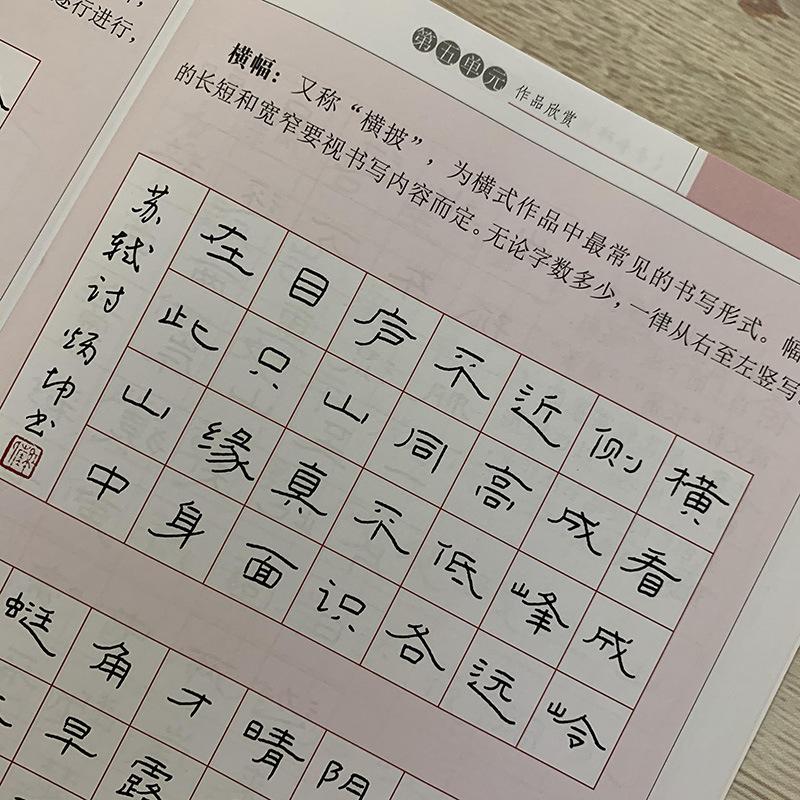 行进行，
第五单元
作品欣赏
横幅：又称“横披”，为横式作品中最常见的书写形式。幅
的长短和宽窄要视书写内容而定。无论字数多少，一律从右至左竖写。
横看成岭
侧成峰远
近高低各
不同不识
庐山真面
目只缘身
在此山中
苏轼诗炳坤书
阴
晴
才露
角早
蜓